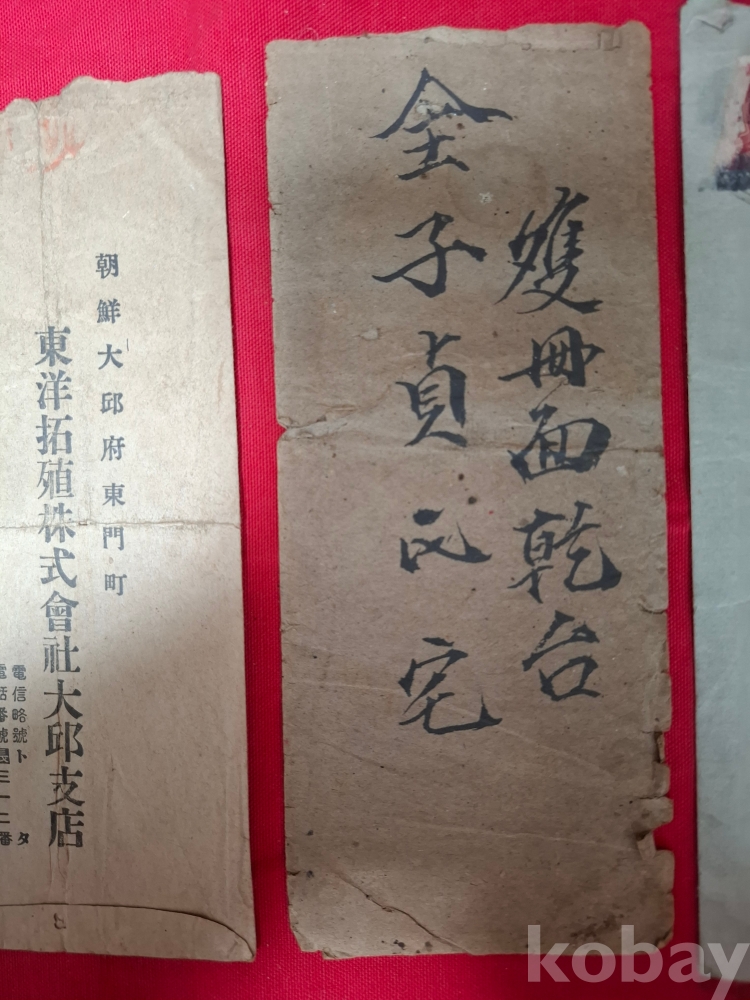 雙冊面乾台
全子貞氏宅
朝鮮大邱府東門町
東洋拓殖株式會社大邱支店
電信略號トタ
電話番號長三一二番
kobay